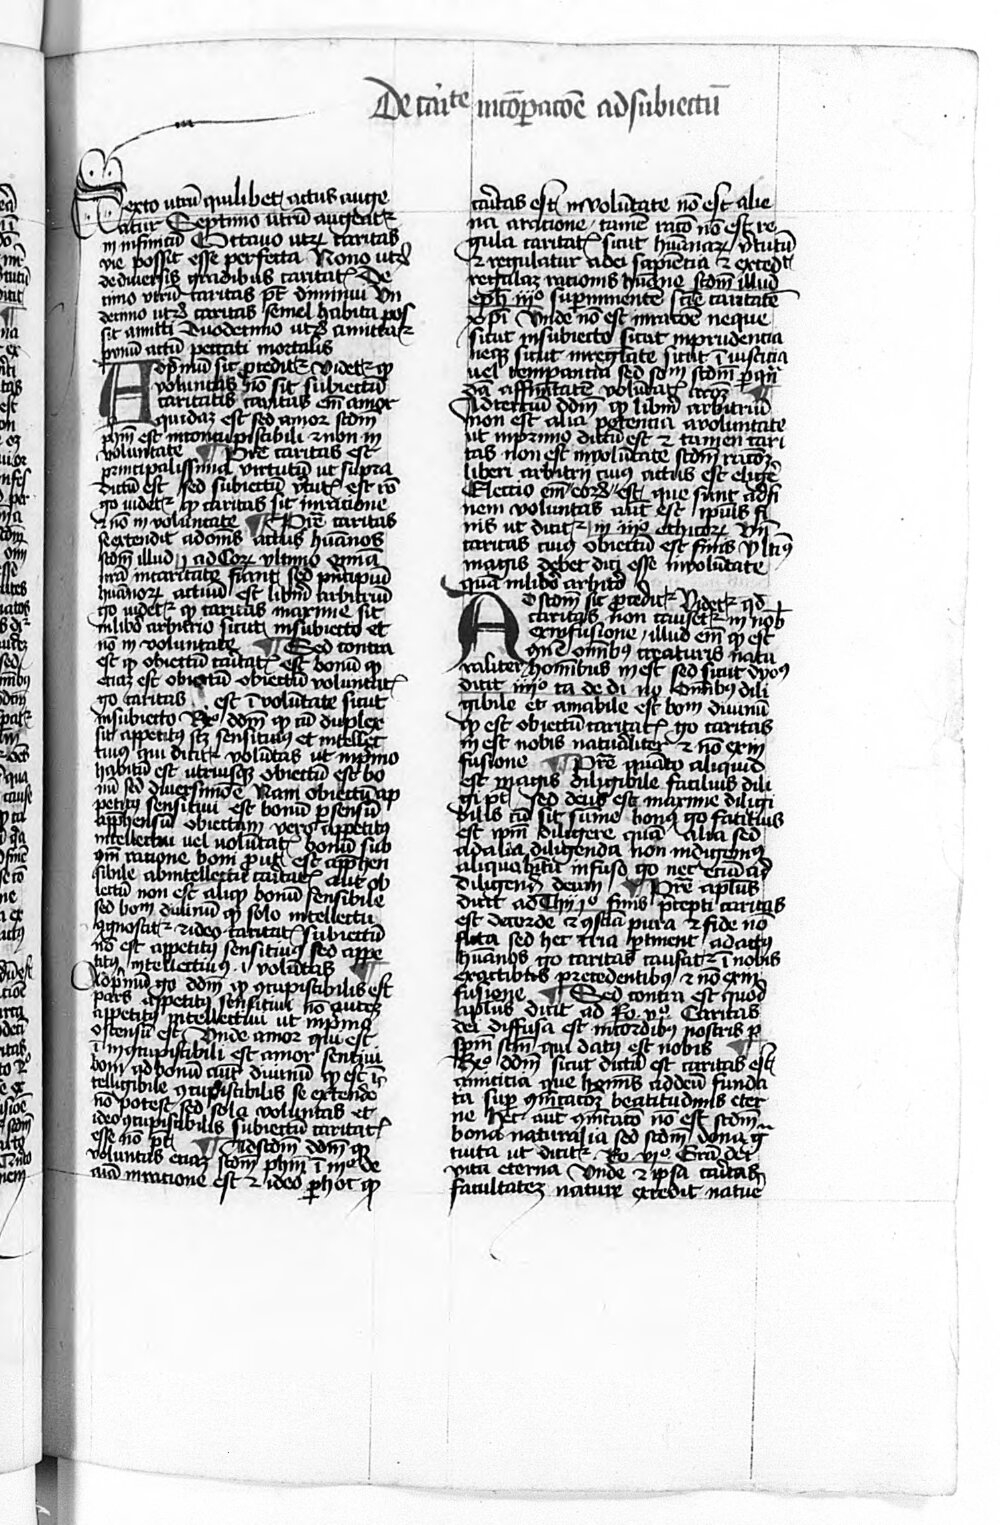 De caritate in cōparacōe ad subiectū
Sexto utrū quilibet actus auge
atur Septimo utrū augeatur
in infinitū Octauo utrū caritas
vie possit esse perfecta Nono utrū
de diuersis gradibus caritatis De
cimo utrū caritas pōt diminui Vn
decimo utrū caritas semel habita pos
sit amitti Duodecimo utrū amittatur
ꝑ unū actū peccati mortalis
Ad p̄mū sic ꝓceditur Videtur qꝫ
voluntas nō sit subiectū
caritatis caritas em̄ amor
quidaꝫ est sed amor scdm
ph̄m est in concupiscibili et non in
voluntate ¶ Pret̄e caritas est
principalissima virtutū ut supra
dictū est sed subiectū v̄tutis est rō
go videtur qꝫ caritas sit in racione
et nō in voluntate ¶ Pret̄e caritas
se extendit ad om̄s actus hūanos
scdm illud j ad Cor vltimo om̄ia
vr̄a in caritate fiant sed prīcipiū
hūanorū actuū est libm̄ arbitriū
go videtur qꝫ caritas maxime sit
in libo arbitrio sicut in subiecto et
nō in voluntate ¶ Sed contra
est qꝫ obiectū caritatis est bonū qꝫ
eciaꝫ est obiectū voluntatis
go caritas est ī volūtate sicut
in subiecto Rº ddm̄ qꝫ cū duplex
sit appetitus scꝫ sensitiuus et intellec
tiuus qui dicitur volūtas ut in pimo
habitū est utriusqꝫ obiectū est bo
nū sed diuersimode Nam obiectū ap
petitus sensitiui est bonū per sensū
apprehensū obiectum vero appetitus
intellectiui uel volūtatis bonū sub
cōmuni racione boni prout est apprehen
sibile ab intellectu caritatis aut ob
iectū non est aliqꝫ bonū sensibile
sed bonū diuinū qꝫ solo intellectu
cognoscitur et ideo caritatis subiectū
nō est appetitus sensitiuus sed appe
titus intellectiuus i voluntas ¶
Ad p̄mū go ddm̄ qꝫ cōcupiscibilis est
pars appetitus sensitiui nō autem
appetitus intellectiui ut in pimo
ostensū est Vnde amor qui est
ī cōcupiscibili est amor sensitiui
boni ad bonū aut diuinū qꝫ est in
telligibile cōcupiscibilis se extendere
nō potest sed sola voluntas et
ideo cōcupiscibilis subiectū caritatis
esse nō pōt ¶ Ad scdm ddm̄ qꝫ
voluntas eciaꝫ scdm ph̄m ī iijº de
aīa in racione est et ideo per hoc qꝫ
caritas est in volūtate nō est alie
na a racione tamen racō nō est re
gula caritatis sicut hūanarū v̄tutū
et regulatur a dei sapiencia et excedit
regulaꝫ racionis hūane scdm illud
eph iijº supereminentē scīe caritatē
xpī Vnde nō est in racōe neque
sicut in subiecto sicut in prudencia
neqꝫ sicut in regulāte sicut ī iusticia
uel temperancia sed solū scdm quan
dā affinitatē volūtatis ad racōꝫ ¶
Ad terciū ddm̄ qꝫ libm̄ arbitriū
non est alia potencia a voluntate
ut in primo dictū est et tamen cari
tas non est in volūtate scdm racōꝫ
liberi arbitrii cuius actus est eligere
Eleccio em̄ eorū est que sunt ad fi
nem voluntas aut est ipsius fi
nis ut dicitur in iijº ethicorū Vn̄
caritas cuius obiectū est finis vltimus
magis debet dici esse in volūtate
quā in libo arbitrio
Ad scdm sic ꝓceditur Videtur qd
caritas non causetur in nob̄
ex infusione illud em̄ qꝫ est
cōe om̄ibus creaturis natu
raliter hominibus inest sed sicut dyonis
dicit iiijº ca de di no om̄ibus dili
gibile et amabile est bonū diuinū
qꝫ est obiectū caritatis go caritas
inest nobis naturaliter et nō ex in
fusione ¶ Pret̄e quāto aliquid
est magis diligibile facilius dili
gi pōt sed deus est maxime diligi
bilis cū sit sūme bonus go facilius
est ipm̄ diligere quā alia sed
ad alia diligenda non indigemus
aliquo hītu infuso go nec eciā ad
diligendū deum ¶ Pret̄e aplus
dicit ad Thi jº finis p̄cepti caritas
est de corde et cōsciā pura et fide nō
ficta sed hec tria ꝑtinent ad actus
hūanos go caritas causatur ī nobis
ex actibus precedentibus et nō ex in
fusione ¶ Sed contra est quod
aplus dicit ad Ro vº Caritas
dei diffusa est in cordibus nostris ꝑ
spm̄ scm̄ qui datus est nobis ¶
Rº ddm̄ sicut dictū est caritas est
amicitia que hominis ad deū funda
ta sup cōicatōꝫ beatitudinis eter
ne hec aut cōicatō nō est scdm
bona naturalia sed scdm dona g
tuita ut dicitur Ro vjº Grā dei
vita eterna Vnde et ipsa caritas
facultateꝫ nature excedit nature